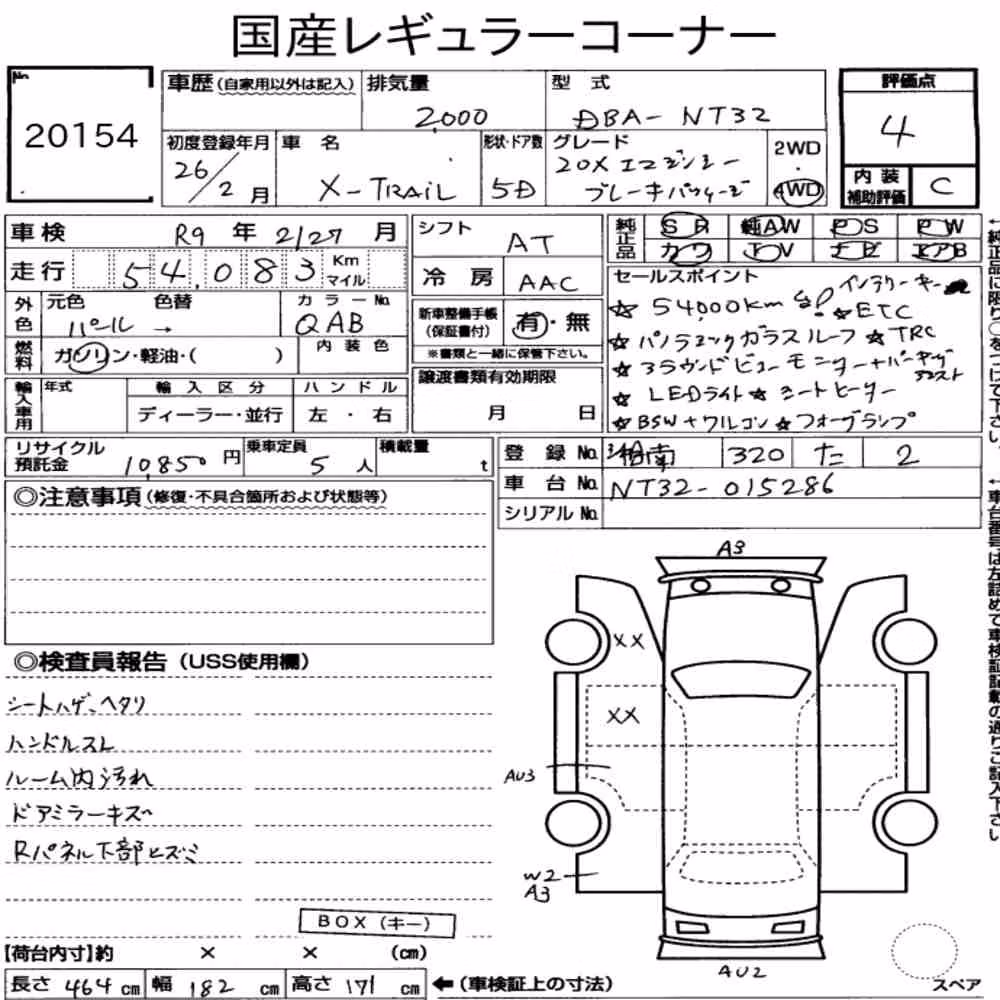 国産レギュラーコーナー
No.
20154
車歴(自家用以外は記入)
排気量
2,000
型 式
DBA- NT32
評価点
4
初度登録年月
26/2月
車 名
X-TRAIL
形状・ドア数
5D
グレード
20X エマージェンシー
ブレーキパッケージ
2WD
・
4WD
内装
補助評価
C
車検 R9 年 2/27 月
走行 54,083 Km
マイル
シフト AT
冷房 AAC
純正品
SR 純AW PS PW
カワ TV ナビ エアB
外色
元色 パール
色替 →
カラーNo.
QAB
燃料
ガソリン・軽油・( )
内装色
新車整備手帳
(保証書付)
有・無
※書類と一緒に保管下さい。
セールスポイント
☆54000Km インテリキー
☆ETC
☆パノラミックガラスルーフ ☆TRC
☆アラウンドビューモニター+パーキングアシスト
☆LEDライト ☆シートヒーター
☆BSW+クルコン ☆フォグランプ
輸入車用
年式
輸入区分
ディーラー・並行
ハンドル
左・右
譲渡書類有効期限
月 日
リサイクル
預託金
10850円
乗車定員
5人
積載量
t
登録No. 湘南 320 た 2
車台No. NT32-015286
シリアルNo.
◎注意事項(修復・不具合箇所および状態等)
◎検査員報告(USS使用欄)
シートハゲ、ヘタリ
ハンドルスレ
ルーム内汚れ
ドアミラーキズ
Rパネル下部ヒズミ
BOX(キー)
A3
XX
XX
AU3
W2
A3
AU2
スペア
【荷台内寸】約 × × (cm)
長さ 464 cm 幅 182 cm 高さ 171 cm ←(車検証上の寸法)
←純正品に限り○をつけて下さい。
←車台番号は左詰めで車検証記載の通りご記入下さい